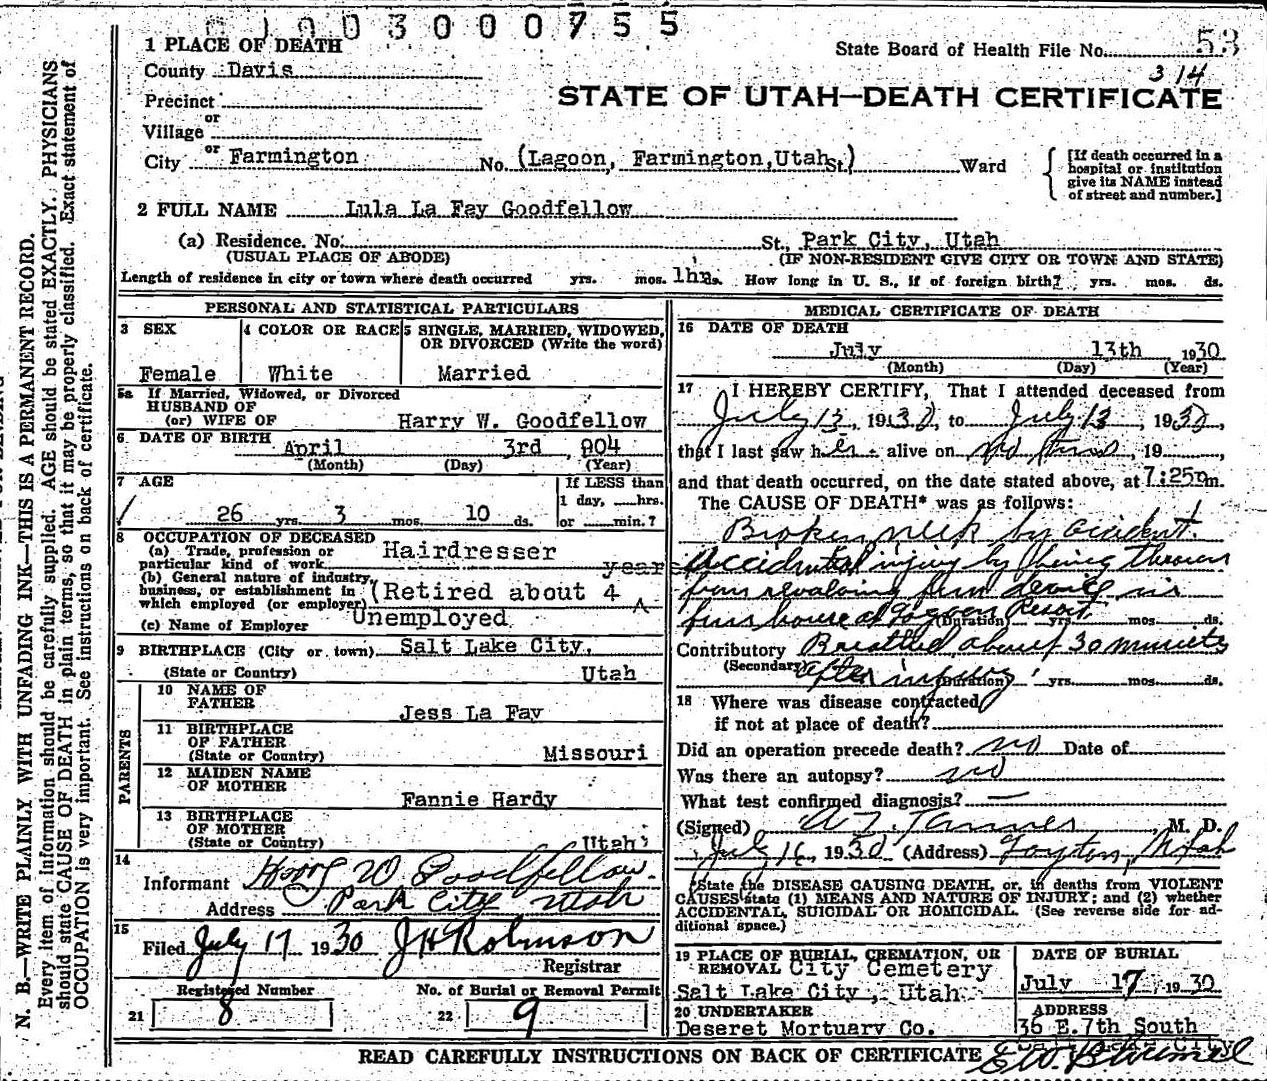 3000755
1 PLACE OF DEATH
State Board of Health File No. 53
County Davis
314
Precinct
STATE OF UTAH—DEATH CERTIFICATE
or
Village
or
City Farmington No. (Lagoon, Farmington, Utah St.) Ward
[If death occurred in a
hospital or institution
give its NAME instead
of street and number.]
2 FULL NAME Lula La Fay Goodfellow
(a) Residence. No. St., Park City, Utah
(USUAL PLACE OF ABODE) (IF NON-RESIDENT GIVE CITY OR TOWN AND STATE)
Length of residence in city or town where death occurred yrs. mos. 1hr ds. How long in U. S., if of foreign birth? yrs. mos. ds.
PERSONAL AND STATISTICAL PARTICULARS
3 SEX
Female
4 COLOR OR RACE
White
5 SINGLE, MARRIED, WIDOWED,
OR DIVORCED (Write the word)
Married
5a If Married, Widowed, or Divorced
HUSBAND OF
(or) WIFE OF Harry W. Goodfellow
6 DATE OF BIRTH April 3rd, 904
(Month) (Day) (Year)
7 AGE
26 yrs. 3 mos. 10 ds.
If LESS than
1 day, hrs.
or min.?
8 OCCUPATION OF DECEASED
(a) Trade, profession or
particular kind of work Hairdresser
years
(b) General nature of industry,
business, or establishment in
which employed (or employer) (Retired about 4
(c) Name of Employer Unemployed
9 BIRTHPLACE (City or town) Salt Lake City,
(State or Country) Utah
PARENTS
10 NAME OF
FATHER Jess La Fay
11 BIRTHPLACE
OF FATHER
(State or Country) Missouri
12 MAIDEN NAME
OF MOTHER
Fannie Hardy
13 BIRTHPLACE
OF MOTHER
(State or Country) Utah
14
Informant Harry W Goodfellow.
Address Park City Utah
15
Filed July 17 1930 J H Robinson
Registrar
Registered Number
21 8
No. of Burial or Removal Permit
22 9
MEDICAL CERTIFICATE OF DEATH
16 DATE OF DEATH
July 13th 1930
(Month) (Day) (Year)
17 I HEREBY CERTIFY, That I attended deceased from
July 13, 1930, to July 13, 1930,
that I last saw her alive on no time, 19
and that death occurred, on the date stated above, at 7:25pm.
The CAUSE OF DEATH* was as follows:
Broken neck by accident.
Accidental injury by being thrown
from revolving fun device in
fun house at Lagoon Resort.
(Duration) yrs. mos. ds.
Contributory Breathed about 30 minutes
(Secondary) after injury
(Duration) yrs. mos. ds.
18 Where was disease contracted
if not at place of death?
Did an operation precede death? no Date of
Was there an autopsy? no
What test confirmed diagnosis? —
(Signed) A Z Tanner, M. D.
July 16, 1930 (Address) Layton, Utah
*State the DISEASE CAUSING DEATH, or, in deaths from VIOLENT
CAUSES state (1) MEANS AND NATURE OF INJURY; and (2) whether
ACCIDENTAL, SUICIDAL OR HOMICIDAL. (See reverse side for ad-
ditional space.)
19 PLACE OF BURIAL, CREMATION, OR
REMOVAL City Cemetery
Salt Lake City, Utah
DATE OF BURIAL
July 17, 1930
20 UNDERTAKER
Deseret Mortuary Co.
ADDRESS
36 E. 7th South
Salt Lake City
READ CAREFULLY INSTRUCTIONS ON BACK OF CERTIFICATE
N. B.—WRITE PLAINLY WITH UNFADING INK—THIS IS A PERMANENT RECORD.
Every item of information should be carefully supplied. AGE should be stated EXACTLY. PHYSICIANS
should state CAUSE OF DEATH in plain terms, so that it may be properly classified. Exact statement of
OCCUPATION is very important. See instructions on back of certificate.